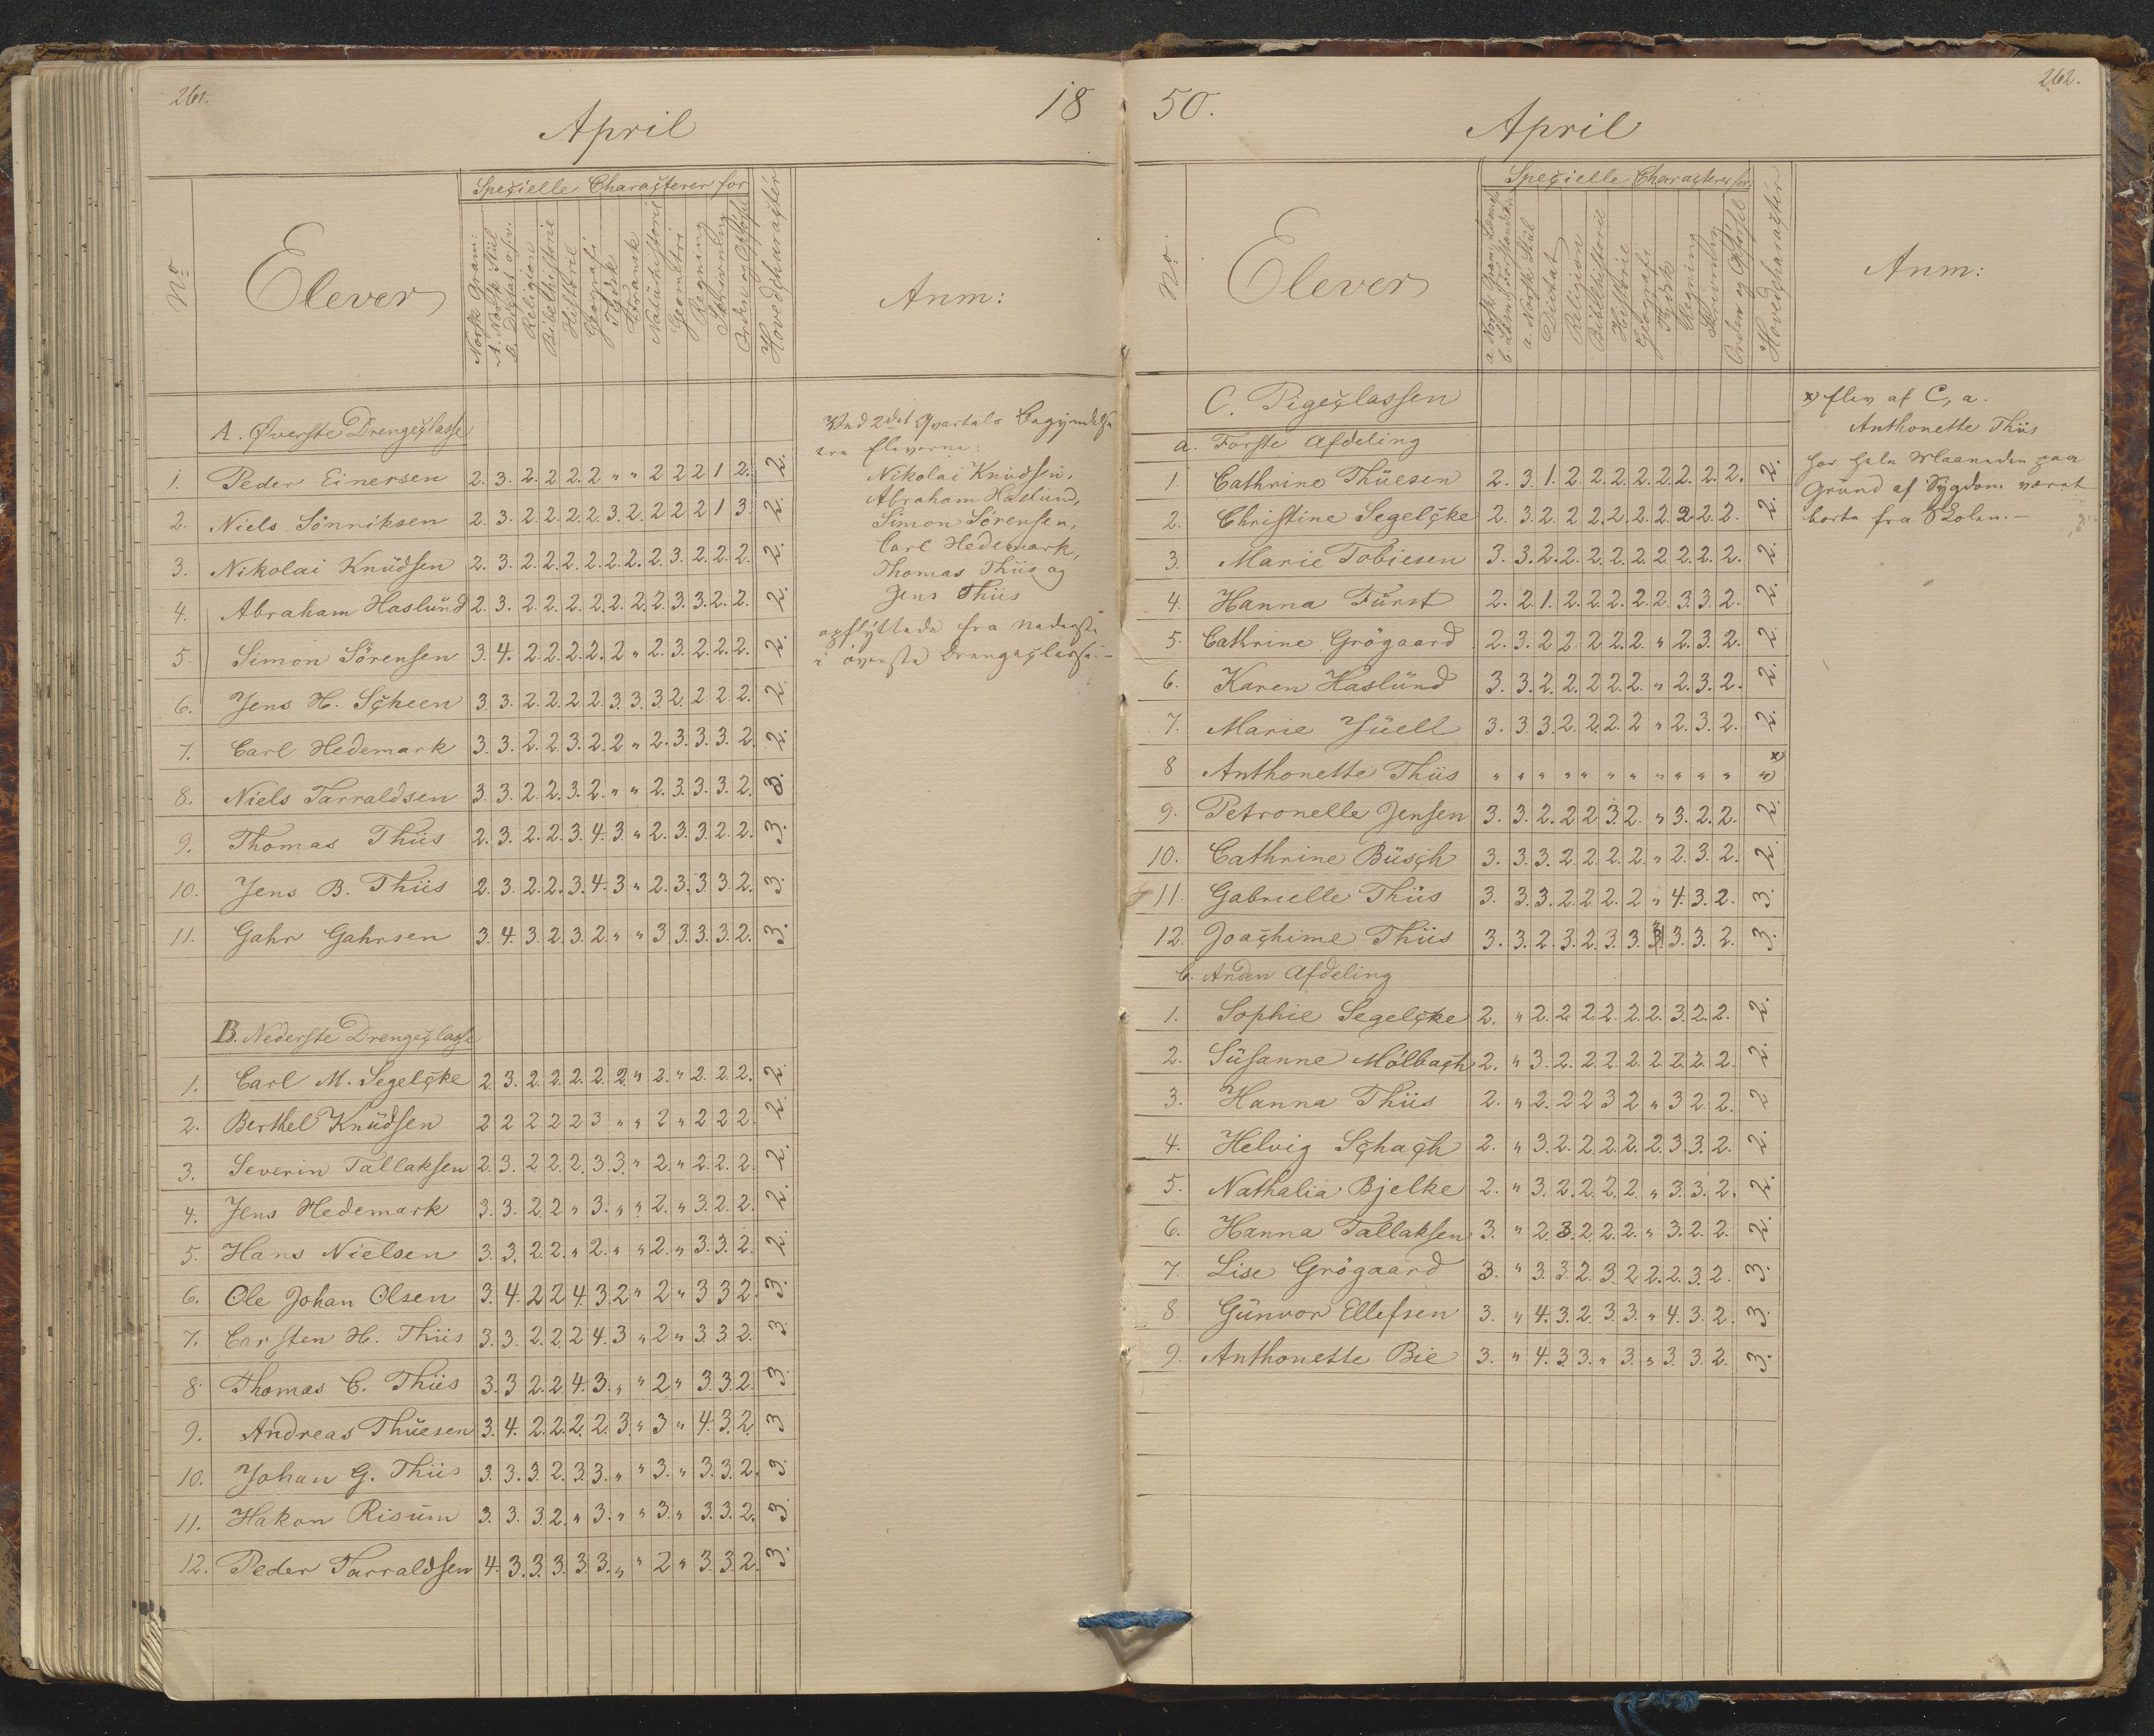 261.
18
April
Nº
Elever
Speçielle Charaçterer for
Norsk Gram:
A. Norsk Stiil
B. Diçtat o.s.v.
Religion
Bibelhistorie
Historie
Geografi
Tydsk
Fransk
Naturhistorie
Geometri
Regning
Skrivning
Orden og Opførsel
Hovedçharaçtér
Anm:
A. Øverste Drengeçlasse
1. Peder Einersen 2. 3. 2. 2. 2. 2 " " 2 2 2 1 2. 2.
2. Niels Sönniksen 2. 3. 2. 2. 2. 2. 3. 2. 2 2 2 1 3. 2.
3. Nikolai Knüdsen 2. 3. 2. 2. 2. 2. 2. 2. 2. 3. 2. 2. 2. 2.
4. Abraham Haslünd 2. 3. 2. 2. 2. 2. 2. 2. 2. 3. 3. 2. 2. 2.
5. Simon Sörensen 3. 4. 2. 2. 2. 2. 2 " 2. 3. 2. 2. 2. 2.
6. Jens H. Sçheen 3. 3. 2. 2. 2. 2. 3. 3. 3. 2. 2. 2. 2. 2.
7. Carl Hedemark 3. 3. 2. 2. 3. 2. 2 " 2. 3. 3. 3. 2. 2.
8. Niels Tarraldsen 3. 3. 2. 2. 3. 2. " " 2. 3. 3. 3. 2. 3.
9. Thomas Thiis 2. 3. 2. 2. 3. 4. 3. " 2. 3. 3. 2. 2. 3.
10. Jens B. Thiis 2. 3. 2. 2. 3. 4. 3 " 2. 3. 3. 3. 2. 3.
11. Gahr Gahrsen 3. 4. 3. 2. 3. 2. " " 3 3. 3. 3. 2. 3.
B. Nederste Drengeçlasse
1. Carl M. Segelçke 2 3. 2. 2. 2. 2. 2. " 2. " 2. 2. 2. 2.
2. Berthel Knüdsen 2 2 2 2 2 3 " " 2 " 2 2 2. 2.
3. Severin Tallaksen 2. 3. 2. 2. 2. 3. 3. " 2. " 2. 2. 2. 2.
4. Jens Hedemark 3. 3. 2. 2 " 3. " " 2. " 3. 2. 2. 2.
5. Hans Nielsen 3. 3. 2. 2. " 2. " " 2. " 3. 3. 2. 2.
6. Ole Johan Olsen 3. 4. 2 2 4. 3. 2 " 2 " 3 3 2. 3.
7. Carsten H. Thiis 3. 3. 2. 2. 2 4. 3 " 2 " 3 3 2. 3.
8. Thomas C. Thiis 3. 3 2. 2. 4. 3. " " 2 " 3. 3. 2. 3.
9. Andreas Thüesen 3. 4. 2. 2. 2. 2. 3. " 3 " 4. 3. 2. 3
10. Johan G. Thiis 3. 3. 3. 2. 3. 3. " " 3. " 3. 3. 2. 3.
11. Hakon Risum 3. 3. 3. 2. " 3. " " 3. " 3. 3. 2. 3.
12. Peder Tarraldsen 4. 3. 3. 3. 3. 3. " " 2 " 3. 3. 2. 3.
Ved 2det Qvartals Begyndelse
ere Eleverne:
Nikolai Knüdsen,
Abraham Haslund,
Simon Sörensen,
Carl Hedemark,
Thomas Thiis og
Jens Thiis
opflyttede fra nederste
i överste Drengeçlasse. –
50.
262.
April
Nº
Elever
Speçielle Charaçterer for
a. Norsk Gram: Læng:
b. Læsn: Forstanden
a. Norsk Stiil
Dictat
Religion
Bibelhistorie
Historie
Geografi
Tydsk
Regning
Skrivning
Orden og Opførsel
Hovedçharaçtér
Anm:
C. Pigeçlassen
a. Förste Afdeling
1. Cathrine Thüesen 2. 3. 1. 2. 2. 2. 2. 2. 2. 2. 2. 2.
2. Christine Segelçke 2. 3. 2. 2. 2. 2. 2. 2. 2. 2. 2. 2.
3. Marie Tobiesen 3. 3. 2. 2. 2. 2. 2. 2. 2. 2. 2. 2.
4. Hanna Fürst 2. 2. 1. 2. 2. 2. 2. 2. 3. 3. 2. 2.
5. Cathrine Grögaard 2. 3. 2. 2. 2. 2. 2. " 2. 3. 2. 2.
6. Karen Haslünd 3. 3. 2. 2. 2. 2. 2. " 2. 3. 2. 2.
7. Marie Jüell 3. 3. 3. 2. 2. 2. 2 " 2. 3. 2. 2.
8 Anthonette Thiis " " " " " " " " " " " " x
9. Petronelle Jensen 3. 3. 2. 2. 2 3. 2. " 3. 2. 2. 2.
10. Cathrine Büsçh 3. 3. 3. 2. 2. 2. 2. " 2. 3. 2. 2.
11. Gabrielle Thiis 3. 3. 3. 2. 2. 2. 2 " 4. 3. 2. 3.
12. Joaçhime Thiis 3. 3. 2. 3. 2. 3. 3. 3. 3. 3. 2. 3.
b. Anden Afdeling
1. Sophie Segelçke 2. " 2. 2. 2. 2. 2. 2. 3. 2. 2. 2.
2. Süsanne Mölbaçh 2. " 3. 2. 2. 2. 2. 2. 2. 2. 2. 2.
3. Hanna Thiis 2. " 2. 2. 2 3 2 " 3 2 2. 2
4. Helvig Sçhaçh 2. " 3. 2. 2. 2. 2. 2. 3. 3. 2. 2.
5. Nathalia Bjelke 2. " 3. 2. 2. 2. 2. " 3. 3. 2. 2.
6. Hanna Tallaksen 3. " 2. 3. 2. 2. 2. " 3. 2. 2. 2.
7. Lise Grögaard 3. " 3. 3. 2. 3. 2. 2. 2. 3. 2. 3.
8 Günvor Ellefsen 3. " 4. 3. 2. 3. 3. " 4. 3. 2. 3.
9. Anthonette Bie 3. " 4. 3. 3. " 3. " 3. 3. 2. 3.
x) Elev af C, a.
Anthonette Thiis
har hele Maaneden paa
Grund af Sygdom været
borte fra Skolen. –